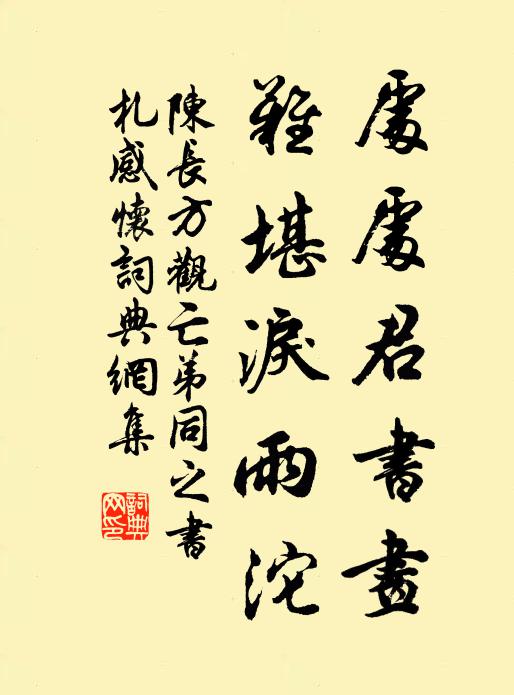 處處君書畫
難堪淚雨沱
陳長方觀亡弟同之書
札感懷詞典網集
詞典網印